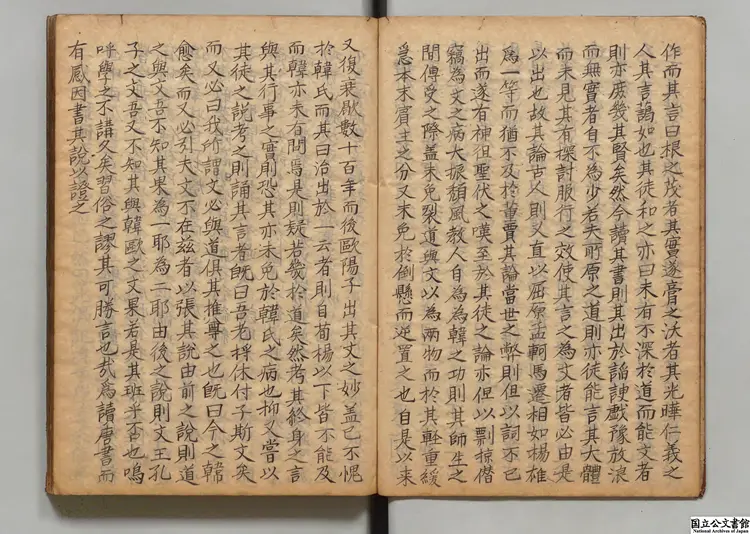 作而其言曰根之茂者其實遂膏之沃者其光曄仁義之
人其言藹如也其徒和之亦曰未有不深於道而能文者
則亦庶幾其賢矣然今讀其書則其出於諂諛戲豫放浪
而無實者自不為少若夫所原之道則亦徒能言其大體
而未見其有探討服行之效使其言之為文者皆必由是
以出也故其論古人則又直以屈原孟軻馬遷相如楊雄
為一等而猶不及於董賈其論當世之弊則但以詞不己
出而遂有神徂聖伏之嘆至於其徒之論亦但以剽掠僭
竊為文之病大振頹風教人自為為韓之功則其師生之
間傳受之際盖未免裂道與文以為兩物而於其輕重緩
急本末賓主之分又未免於倒懸而逆置之也自是以來
又復衰歇數十百年而後歐陽子出其文之妙盖已不愧
於韓氏而其曰治出於一云者則自荀楊以下皆不能及
而韓亦未有聞焉是則疑若幾於道矣然考其終身之言
與其行事之實則恐其亦未免於韓氏之病也抑又嘗以
其徒之說考之則誦其言者既曰吾老將休付子斯文矣
而又必曰我所謂文必與道俱其推尊之也既曰今之韓
愈矣而又必引夫文不在茲者以張其說由前之說則道
之與文吾不知其果為一耶為二耶由後之說則文王孔
子之文吾又不知其與韓歐之文果若是其班乎否也嗚
呼學之不講久矣習俗之謬其可勝言也哉吾讀唐書而
有感因書其說以證之
国立公文書館
National Archives of Japan